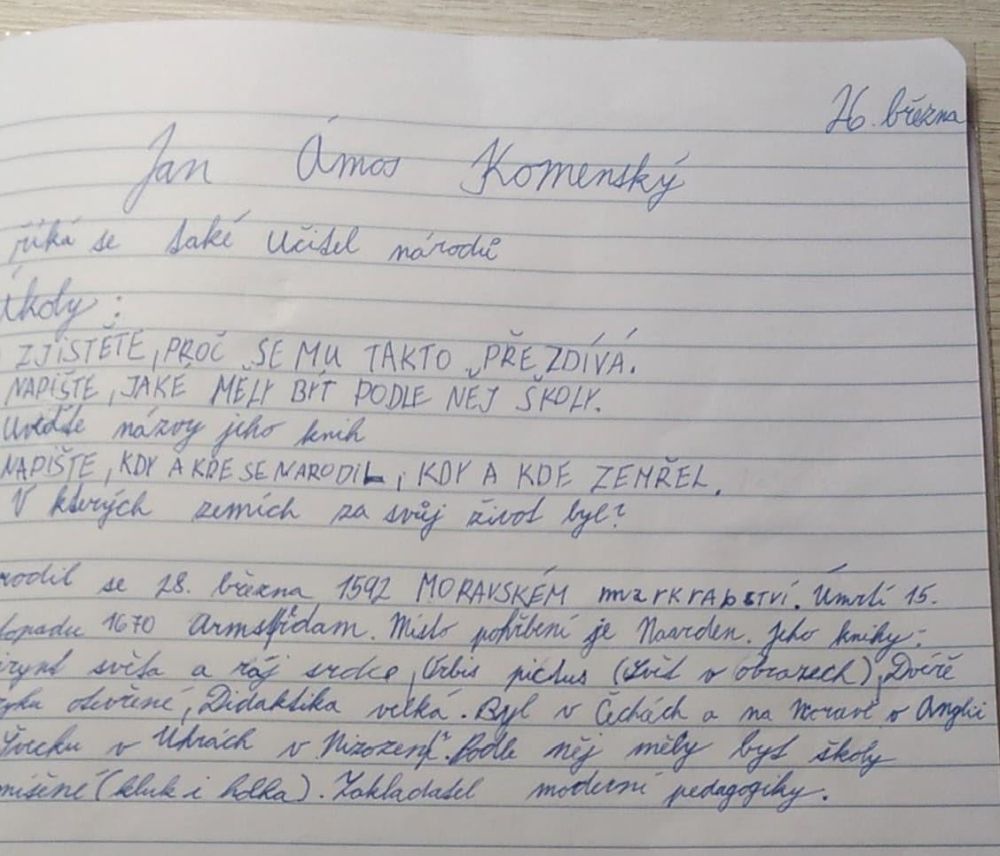 26. března
Jan Ámos Komenský
říká se také Učitel národů
úkoly:
ZJISTĚTE, PROČ SE MU TAKTO PŘEZDÍVÁ.
NAPIŠTE, JAKÉ MĚLY BÝT PODLE NĚJ ŠKOLY.
Uveďte názvy jeho knih
NAPIŠTE, KDY A KDE SE NARODIL, KDY A KDE ZEMŘEL.
V kterých zemích za svůj život byl?
rodil se 28. března 1592 MORAVSKÉM MARKRABSTVÍ. Úmrtí 15.
topadu 1670 Armstrdam. Místo pohřbení je Naarden. Jeho knihy:
irynt světa a ráj srdce, Orbis pictus (Svět v obrazech), Dvéře
zyku otevřené, Didaktika velká. Byl v Čechách a na Moravě v Anglii
Švecku v Uhrách v Nizozemí. Podle něj měly být školy
míšené (kluk i holka). Zakladatel moderní pedagogiky.